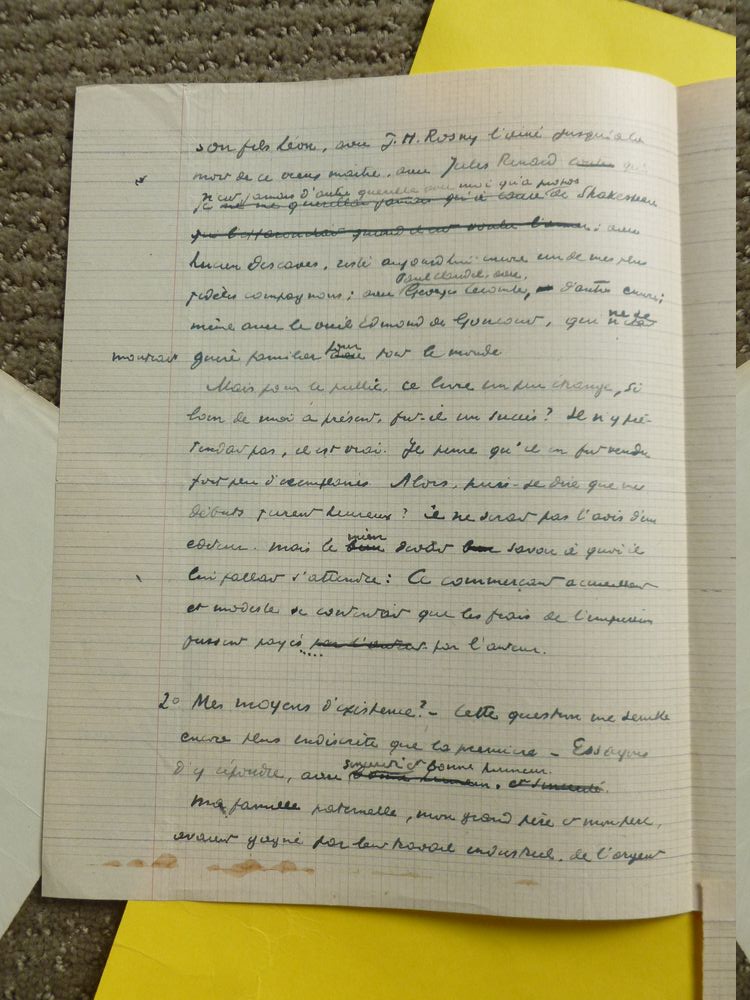 son fils Léon, avec J. H. Rosny l'aîné jusqu'à la
mort de ce vieux maître, avec Jules Renard qui
n'eut jamais d'autre querelle avec moi qu'à propos
je ne me querellai jamais qu'à cause de Shakespeare
; avec
Lucien Descaves, resté aujourd'hui encore un de mes plus
Paul Claudel, avec
fidèles compagnons; avec Georges Lecomte, d'autres encore;
même avec le vieil Edmond de Goncourt, qui ne se
montrait guère familier pour tout le monde
Mais pour le public, ce livre un peu étrange, si
loin de moi à présent, fut-il un succès? Il n'y pré-
tendait pas, il est vrai. Je pense qu'il en fut vendu
fort peu d'exemplaires. Alors, puis-je dire que mes
débuts furent heureux? Ce ne serait pas l'avis d'un
éditeur. mais le mien devait savoir à quoi il
lui fallait s'attendre: Ce commerçant accueillant
et modeste se contentait que les frais de l'impression
fussent payés par l'auteur par l'auteur.
2° Mes moyens d'existence? - Cette question me semble
encore plus indiscrète que la première - Essayons
sincérité et bonne humeur.
d'y répondre, avec bonne humeur, et sincérité.
Ma famille paternelle, mon grand père et mon père,
avaient gagné par leur travail industriel, de l'argent